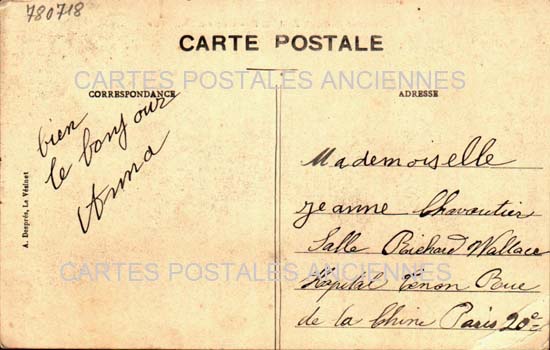 780718
CARTE POSTALE
CARTES POSTALES ANCIENNES
CORRESPONDANCE
ADRESSE
bien
le bonjour
Anna
A. Desprès, Le Vésinet
Mademoiselle
Jeanne Chavoutier
Salle Richard Wallace
CARTES POSTALES ANCIENNES
Hôpital Tenon Rue
de la Chine Paris 20e